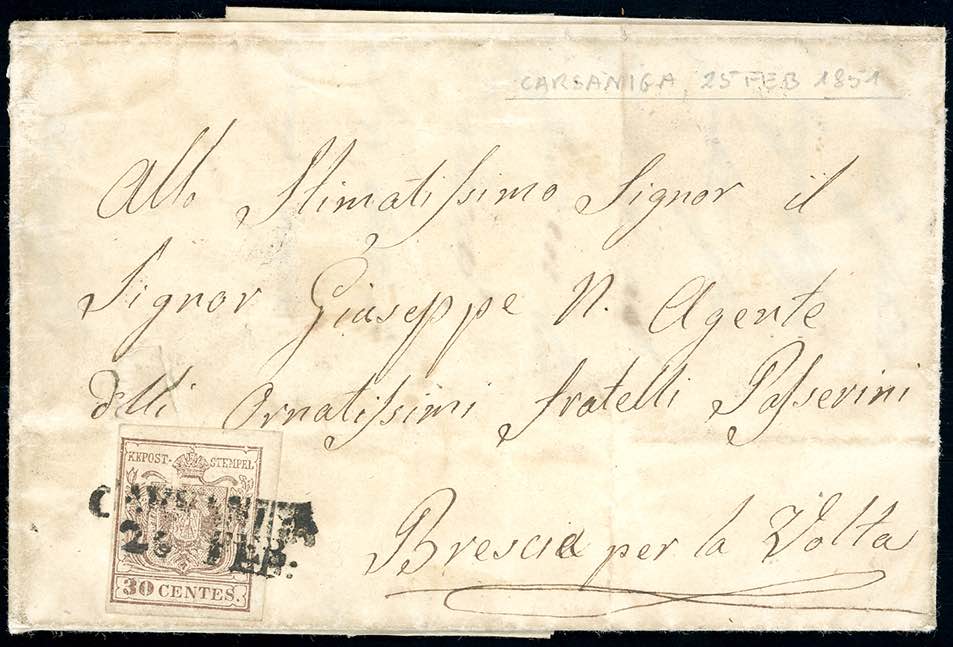 CARSANIGA, 25 FEB 1851
Allo Stimatissimo Signor il
Signor Giuseppe N. Agente
delli Ornatissimi fratelli Passerini
KKPOST- STEMPEL
FEB:
Brescia per la Volta
30 CENTES.